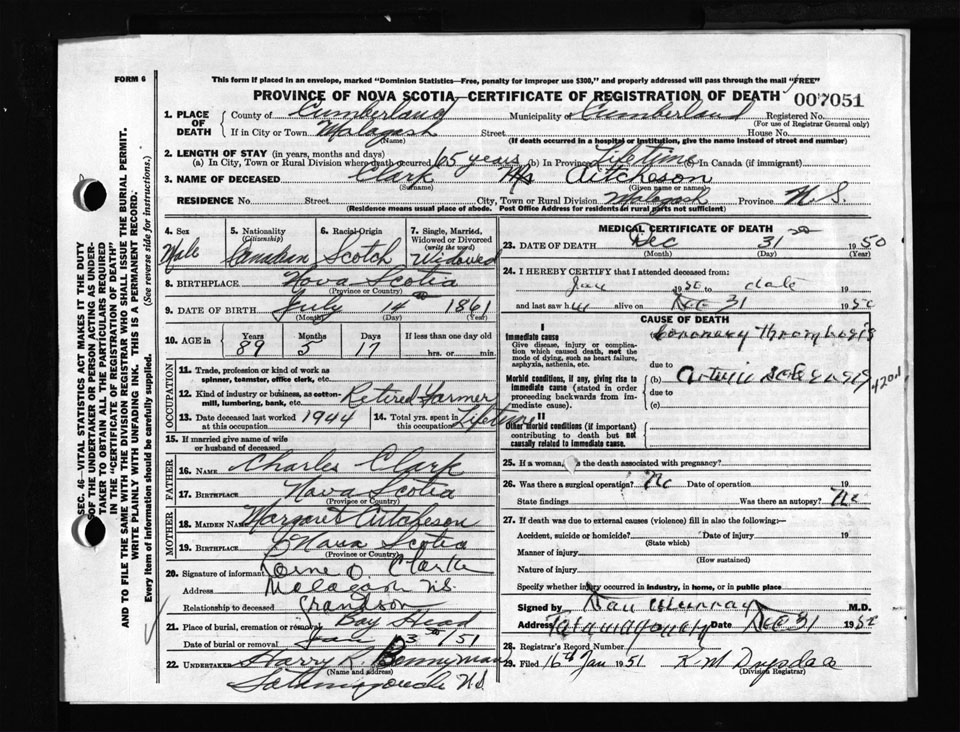 FORM 6
This form if placed in an envelope, marked "Dominion Statistics—Free, penalty for improper use $300," and properly addressed will pass through the mail "FREE"
PROVINCE OF NOVA SCOTIA—CERTIFICATE OF REGISTRATION OF DEATH
007051
1. PLACE OF DEATH { County of Cumberland Municipality of Cumberland Registered No.
(For use of Registrar General only)
If in City or Town Malagash Street House No.
(Name) (If death occurred in a hospital or institution, give the name instead of street and number)
2. LENGTH OF STAY (in years, months and days)
(a) In City, Town or Rural Division where death occurred 65 years (b) In Province Lifetime (c) In Canada (if immigrant)
3. NAME OF DECEASED Clark Aitcheson
(Surname) (Given name or names)
RESIDENCE No. Street City, Town or Rural Division Malagash Province N.S.
(Residence means usual place of abode. Post Office Address for residents in rural parts not sufficient)
4. Sex Male
5. Nationality (Citizenship) Canadian
6. Racial Origin Scotch
7. Single, Married, Widowed or Divorced (write the word) Widowed
8. BIRTHPLACE Nova Scotia
(Province or Country)
9. DATE OF BIRTH July 14th 1861
(Month) (Day) (Year)
10. AGE in { Years 89 Months 5 Days 17 If less than one day old hrs. or min.
OCCUPATION
11. Trade, profession or kind of work as spinner, teamster, office clerk, etc.
12. Kind of industry or business, as cotton-mill, lumbering, bank, etc. Retired Farmer
13. Date deceased last worked at this occupation 1944
14. Total yrs. spent in this occupation Lifetime
15. If married give name of wife or husband of deceased
FATHER
16. NAME Charles Clark
17. BIRTHPLACE Nova Scotia
(Province or Country)
MOTHER
18. MAIDEN NAME Margaret Aitcheson
19. BIRTHPLACE Nova Scotia
(Province or Country)
20. Signature of informant Lorne O. Clarke
Address Malagash N.S.
Relationship to deceased Grandson
21. Place of burial, cremation or removal Bay Head
Date of burial or removal Jan 3rd /51
22. UNDERTAKER Harry R. Bennyman
(Name and address)
Tatamagouche N.S.
MEDICAL CERTIFICATE OF DEATH
23. DATE OF DEATH Dec 31 1950
(Month) (Day) (Year)
24. I HEREBY CERTIFY that I attended deceased from:
Jan 1950 to date
and last saw h alive on Dec 31 1950
CAUSE OF DEATH
I
Immediate cause
Give disease, injury or complication which caused death, not the mode of dying, such as heart failure, asphyxia, asthenia, etc.
Coronary Thrombosis
due to
Morbid conditions, if any, giving rise to immediate cause (stated in order proceeding backwards from immediate cause).
(b) Arterio Sclerosis
4201
due to
(c)
II
Other morbid conditions (if important) contributing to death but not causally related to immediate cause.
25. If a woman, is the death associated with pregnancy?
26. Was there a surgical operation? No Date of operation 19
State findings Was there an autopsy? No
27. If death was due to external causes (violence) fill in also the following:—
Accident, suicide or homicide? Date of injury 19
(State which)
Manner of injury
(How sustained)
Nature of injury
Specify whether injury occurred in industry, in home, or in public place
Signed by Dan Murray M.D.
Address Tatamagouche Date Dec 31 1950
28. Registrar's Record Number
29. Filed 16th Jan 1951 K M Drysdale
(Division Registrar)
SEC. 46—VITAL STATISTICS ACT MAKES IT THE DUTY
OF THE UNDERTAKER OR PERSON ACTING AS UNDER-
TAKER TO OBTAIN ALL THE PARTICULARS REQUIRED
IN THE "CERTIFICATE OF REGISTRATION OF DEATH"
AND TO FILE THE SAME WITH THE DIVISION REGISTRAR WHO SHALL ISSUE THE BURIAL PERMIT.
WRITE PLAINLY WITH UNFADING INK. THIS IS A PERMANENT RECORD.
Every item of information should be carefully supplied. (See reverse side for instructions.)